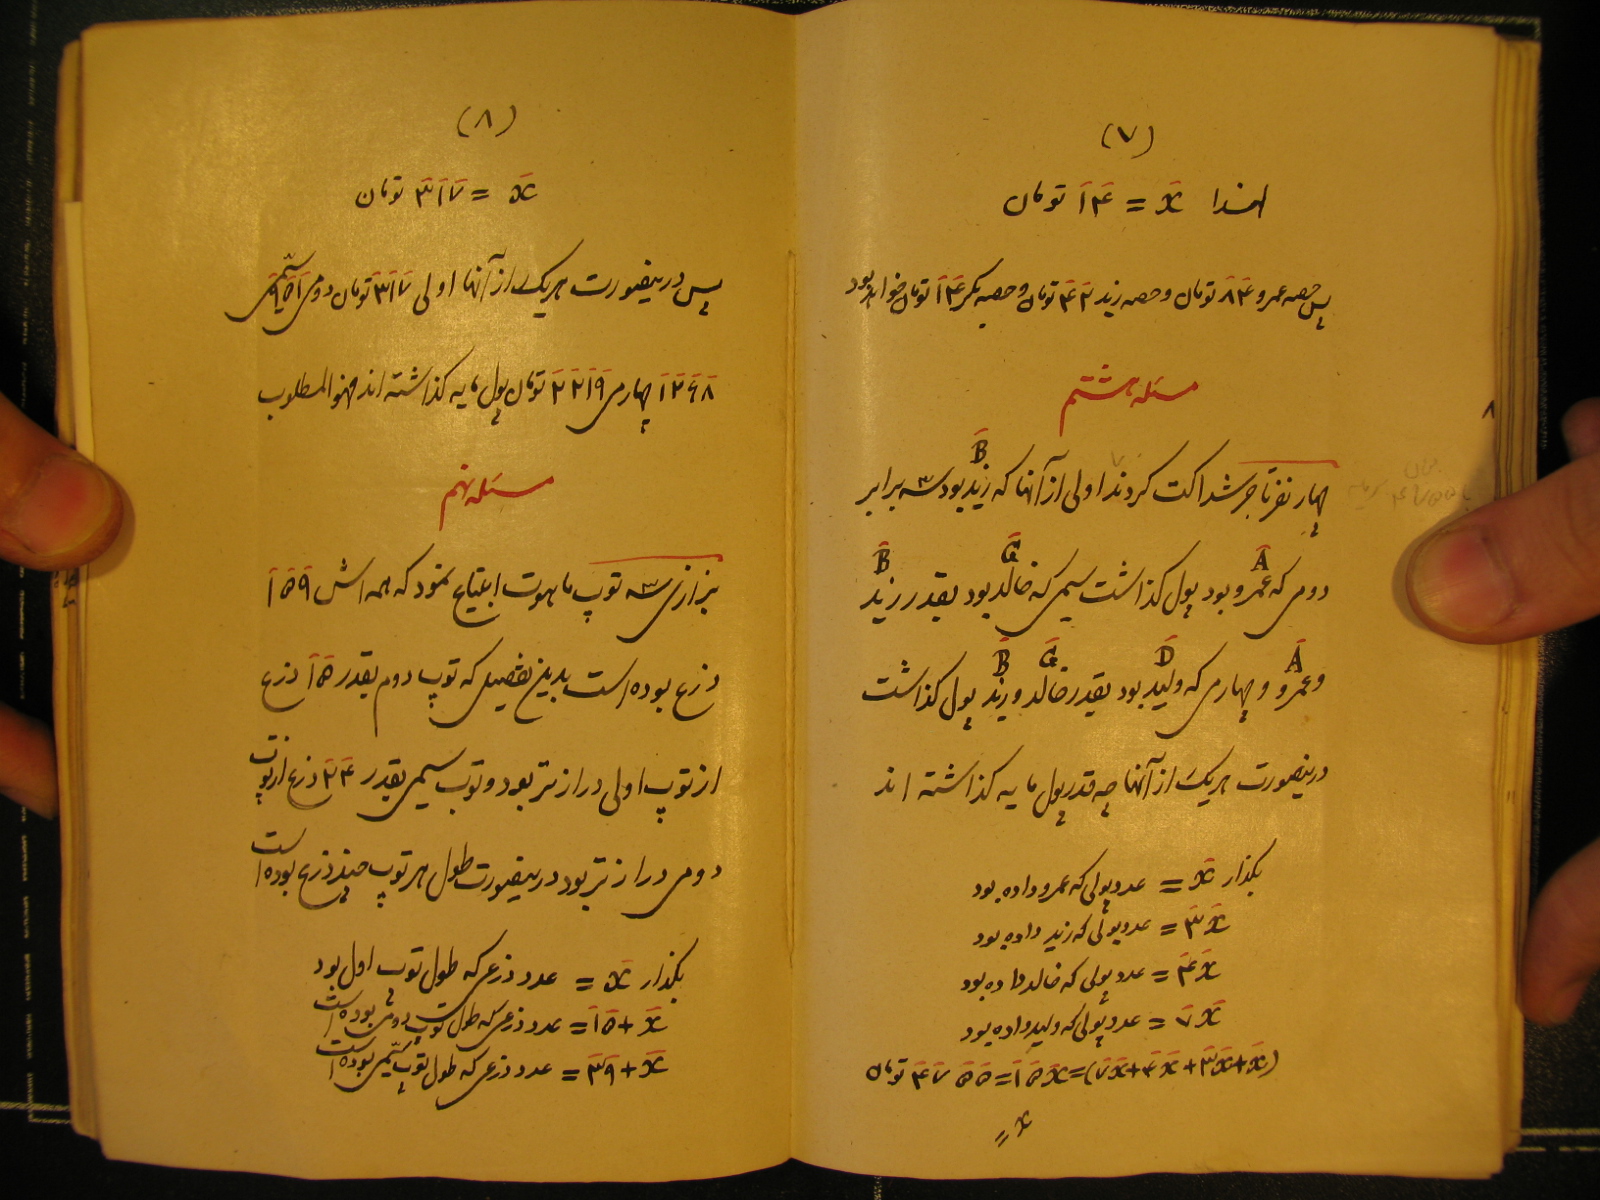 (۷)
لهذا x = ۱۴ تومان
پس حصه عمرو ۸۴ تومان و حصه زید ۴۲ تومان و حصه بکر ۱۴ تومان خواهد بود
مسئله هشتم
B
چهار نفر تاجر شراکت کردند اولی از آنها که زید بود سه ۳ برابر
A G B
دومی که عمرو بود پول گذاشت سیمی که خالد بود بقدر زید
A D G B
و عمرو و چهارمی که ولید بود بقدر خالد و زید پول گذاشت
درینصورت هریک از آنها چه قدر پول مایه گذاشته اند
بگذار x = عدد پولی که عمرو داده بود
۳x = عدد پولی که زید داده بود
۴x = عدد پولی که خالد داده بود
۷x = عدد پولی که ولید داده بود
(x+۳x+۴x+۷x)=۱۵x=۴۷۵۵ تومان
x =
۸
(۸)
x = ۳۱۷ تومان
پس درینصورت هریک از آنها اولی ۳۱۷ تومان دومی ۹۵۱ سیمی
۱۲۶۸ چهارمی ۲۲۱۹ تومان پول مایه گذاشته اند فهو المطلوب
مسئله نهم
بزازی سه ۳ توپ ماهوت ابتیاع نمود که همه اش ۱۵۹
ذرع بوده است بدین تفصیل که توپ دوم بقدر ۱۵ ذرع
از توپ اولی درازتر بود و توپ سیمی بقدر ۲۴ ذرع از توپ
دومی درازتر بود درینصورت طول هر توپ چند ذرع بوده است
بگذار x = عدد ذرعی که طول توپ اول بود
x+۱۵ = عدد ذرعی که طول توپ دومی بوده است
x+۳۹ = عدد ذرعی که طول توپ سیمی بوده است